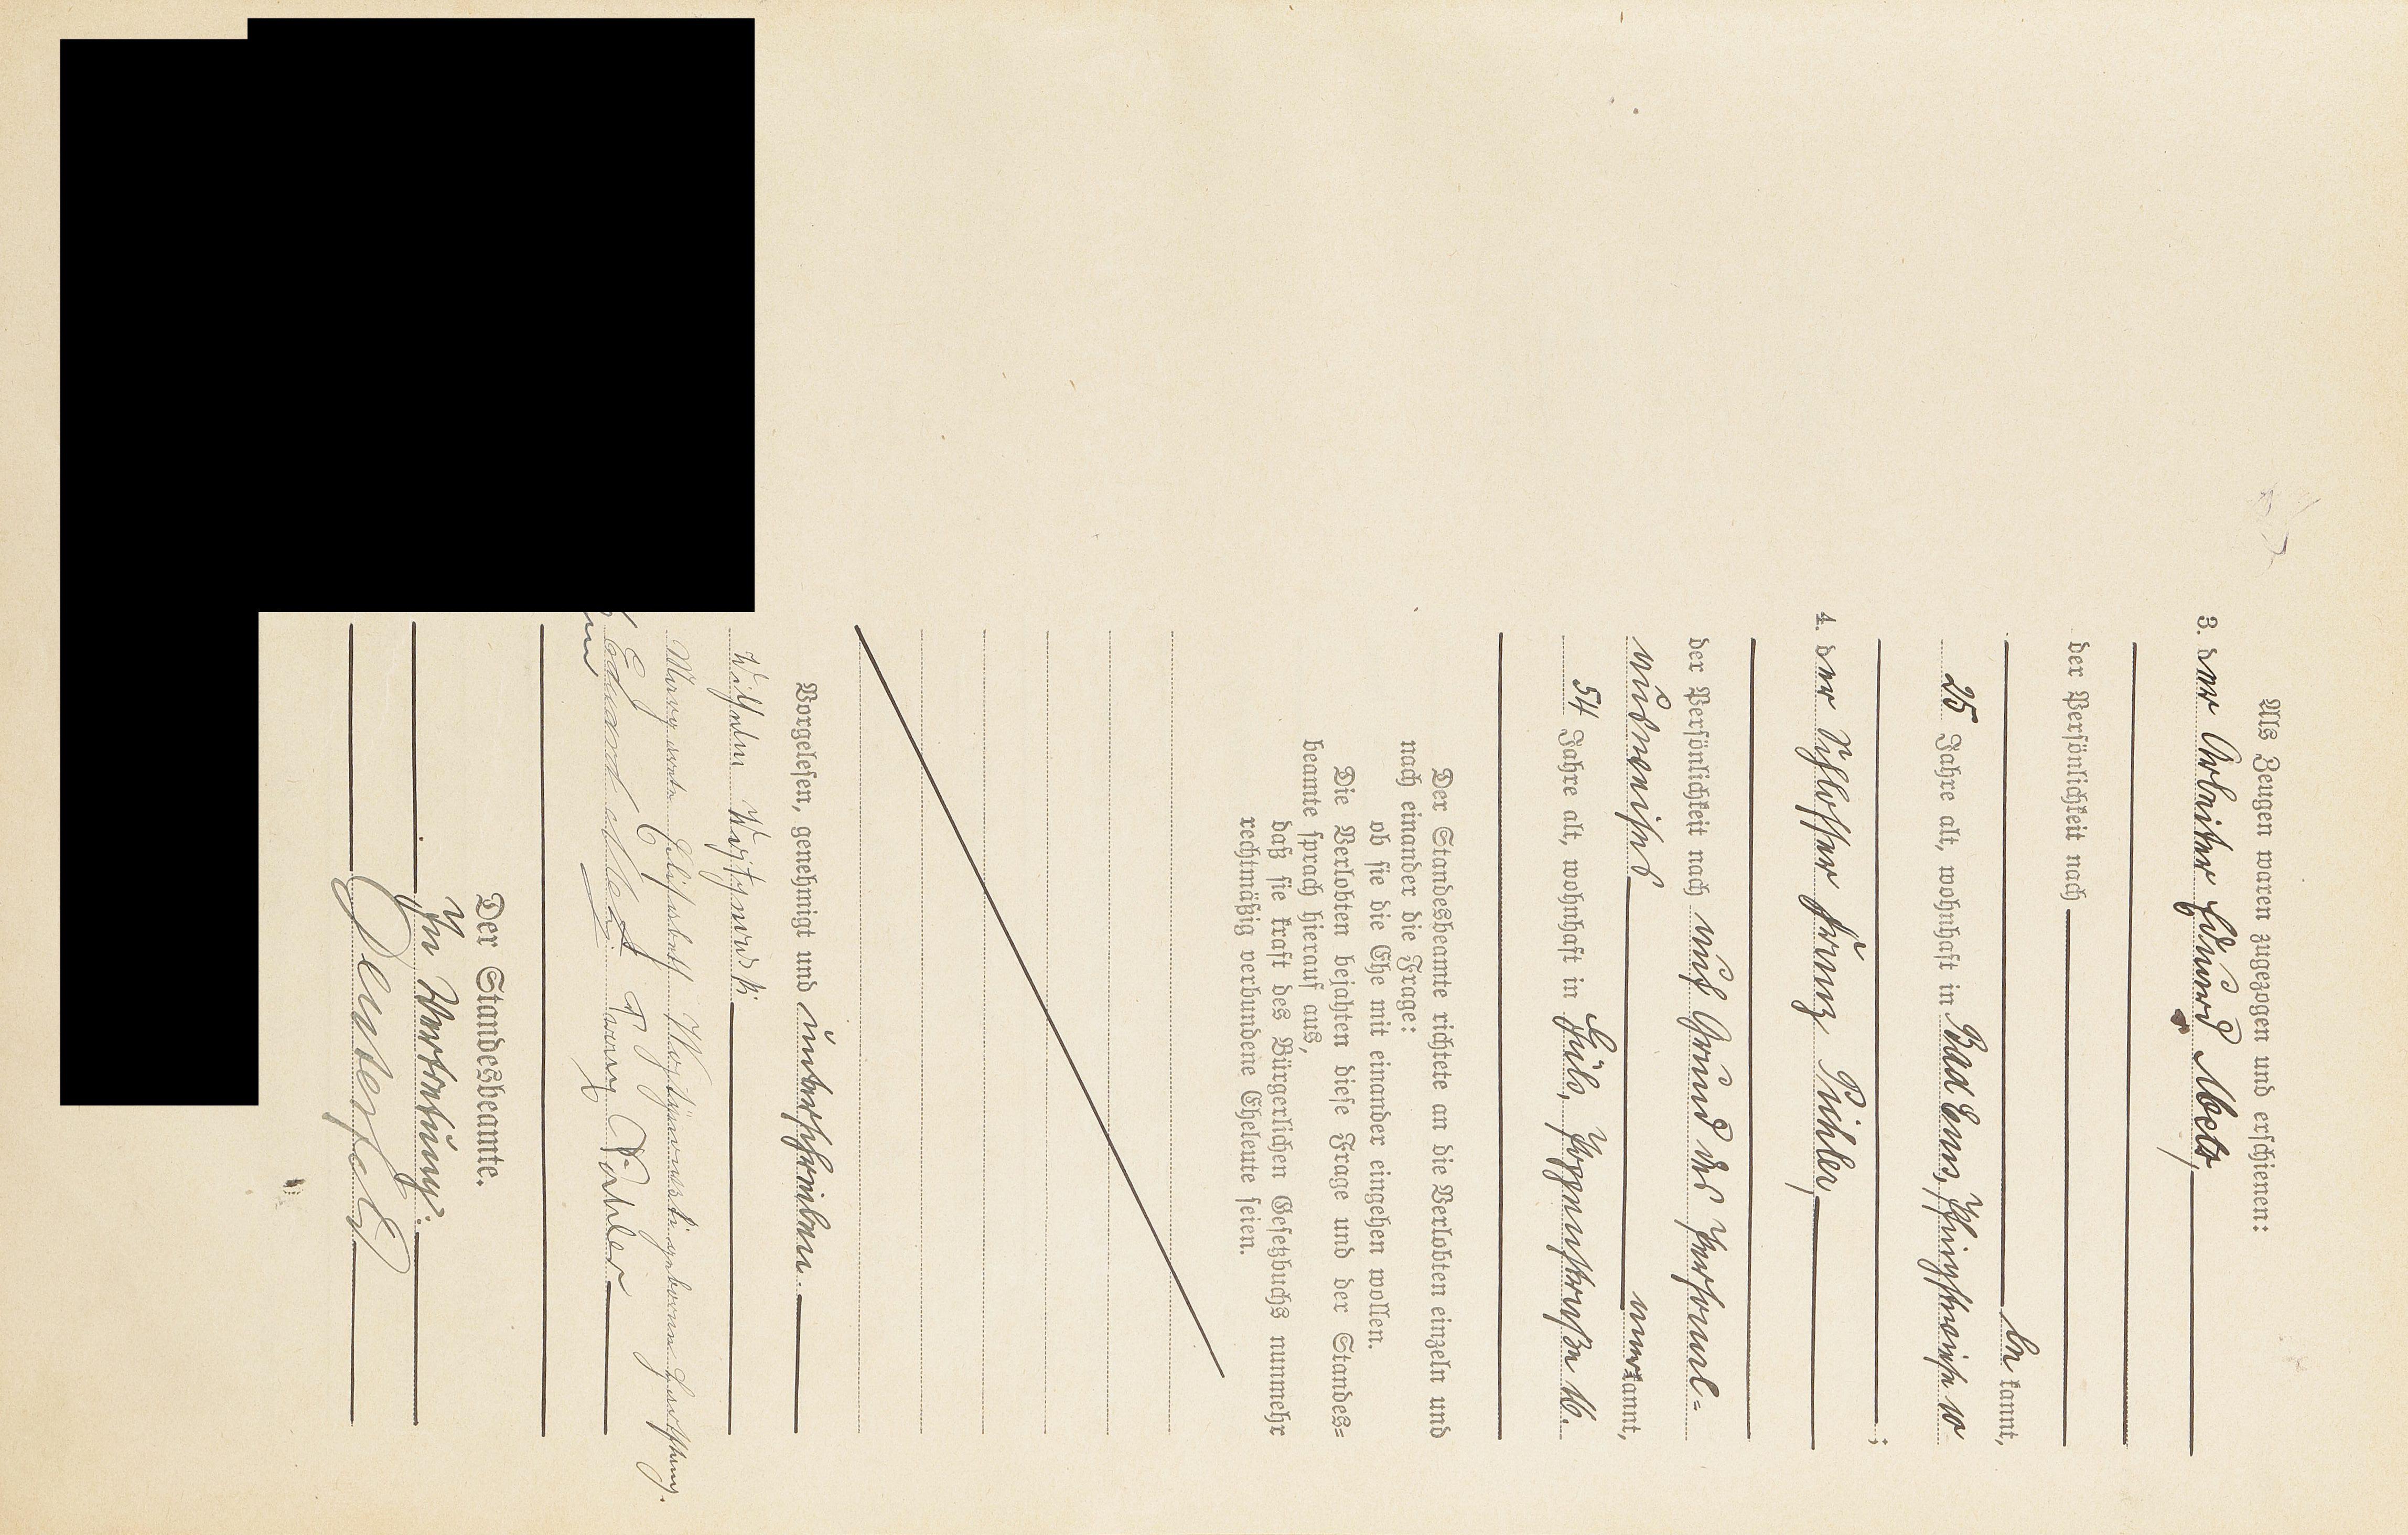 Als Zeugen waren zugezogen und erschienen:
3. der Arbeiter Eduard Metz,
der Persönlichkeit nach
be kannt,
25 Jahre alt, wohnhaft in Bad Ems,
;
4. der Schlosser Franz Pichler,
der Persönlichkeit nach auf Grund des Personal-
ausweises anerkannt,
54 Jahre alt, wohnhaft in 16.
Der Standesbeamte richtete an die Verlobten einzeln und
nach einander die Frage:
ob sie die Ehe mit einander eingehen wollen.
Die Verlobten bejahten diese Frage und der Standes-
beamte sprach hierauf aus,
daß sie kraft des Bürgerlichen Gesetzbuchs nunmehr
rechtmäßig verbundene Eheleute seien.
Vorgelesen, genehmigt und unterschrieben.
Wilhelm
Margareta Elisabeth geborene
Eduard Metz Franz Pichler
Der Standesbeamte.
In Vertretung: